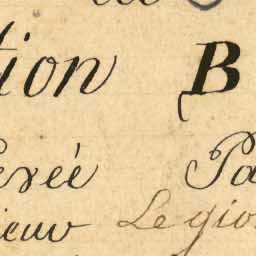 tion B
erée Pa
ieux Legion